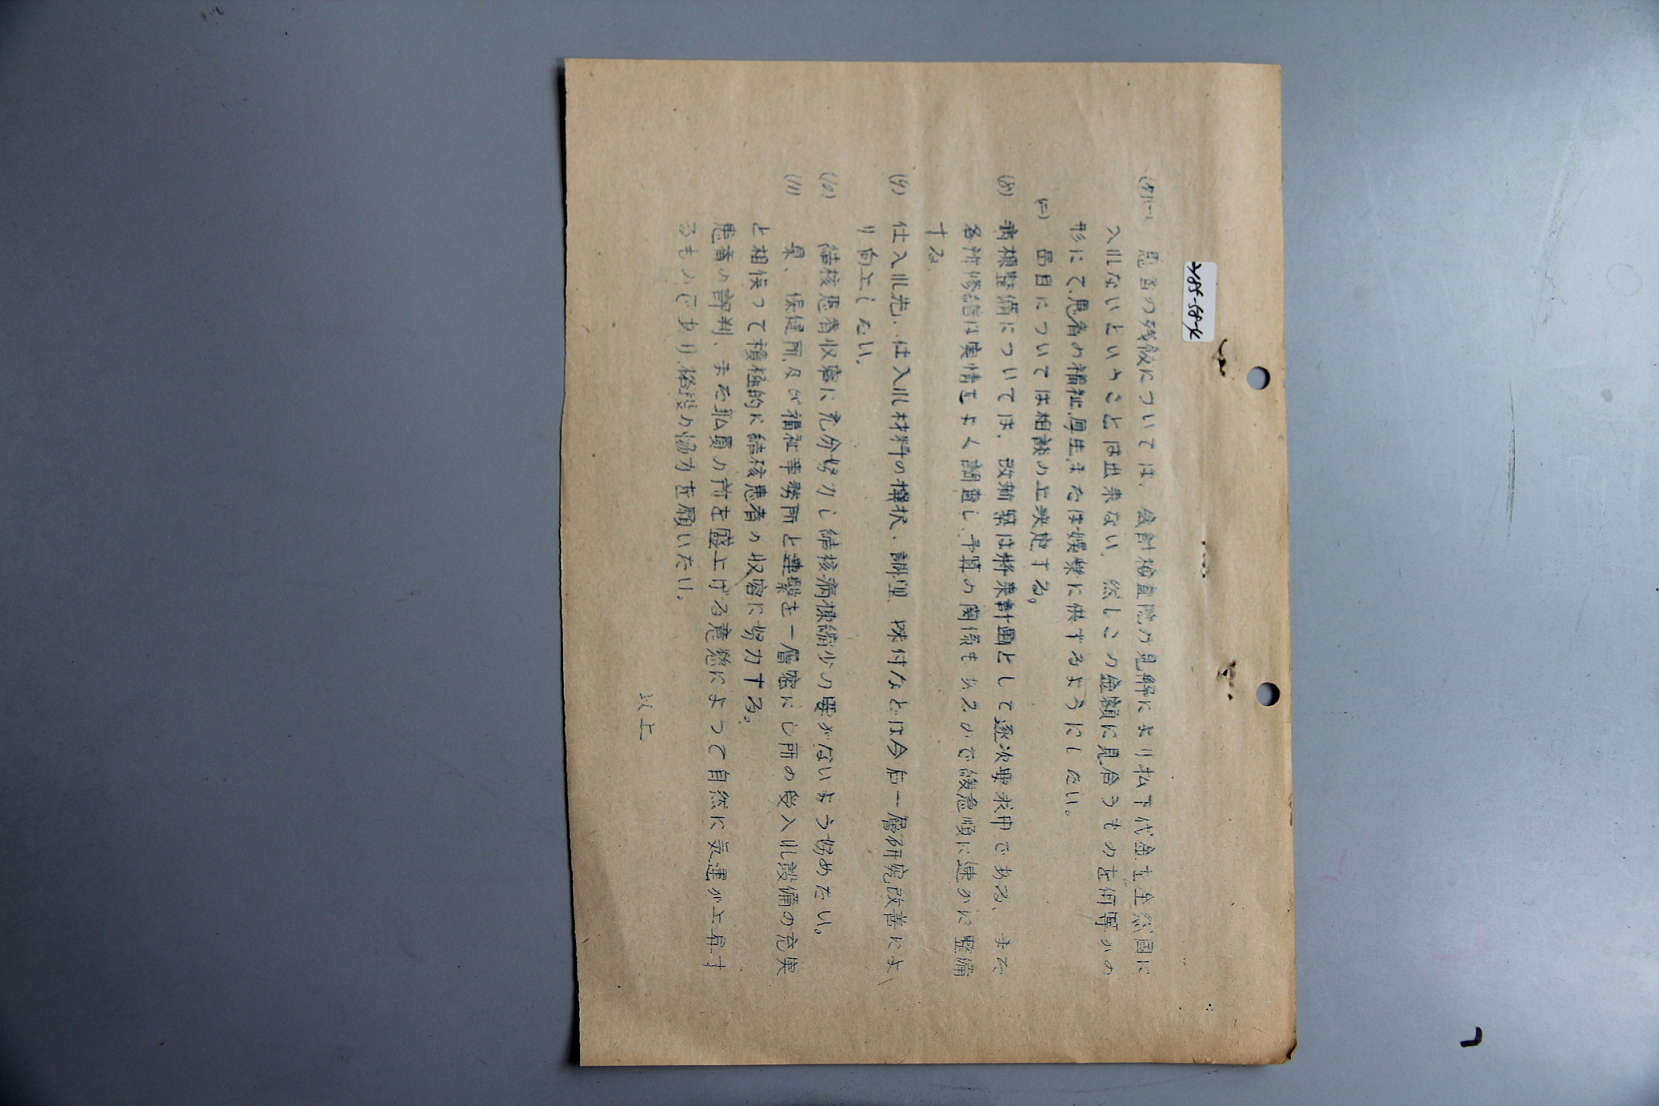 2185-58-K
(7)(一) 患者の残飯については、会計検査院の見解により払下代金を全然國に
入れないということは出来ない。然しこの金額に見合うものを何等かの
形にて患者の福祉、厚生または娯楽に供するようにしたい。
(二) 品目については相談の上決定する。
(8) 病棟整備については、改新築は将来計画として逐次要求中である、また
各所修繕は実情をよく調査し、予算の関係もあるので緩急順に速かに整備
する
(9) 仕入れ先、仕入れ材料の撰択、調理、味付などは今后一層研究改善によ
り向上したい。
(10) 結核患者収容に充分努力し結核病棟縮少の要がないよう努めたい。
(11) 県、保健所、及び福祉事務所と連繋を一層密にし所の受入れ設備の充実
と相俟つて積極的に結核患者の収容に努力する。
患者の評判、また職員の所を盛上げる意慾によつて自然に気運が上昇す
るものであり、格段の協力を願いたい。
以上